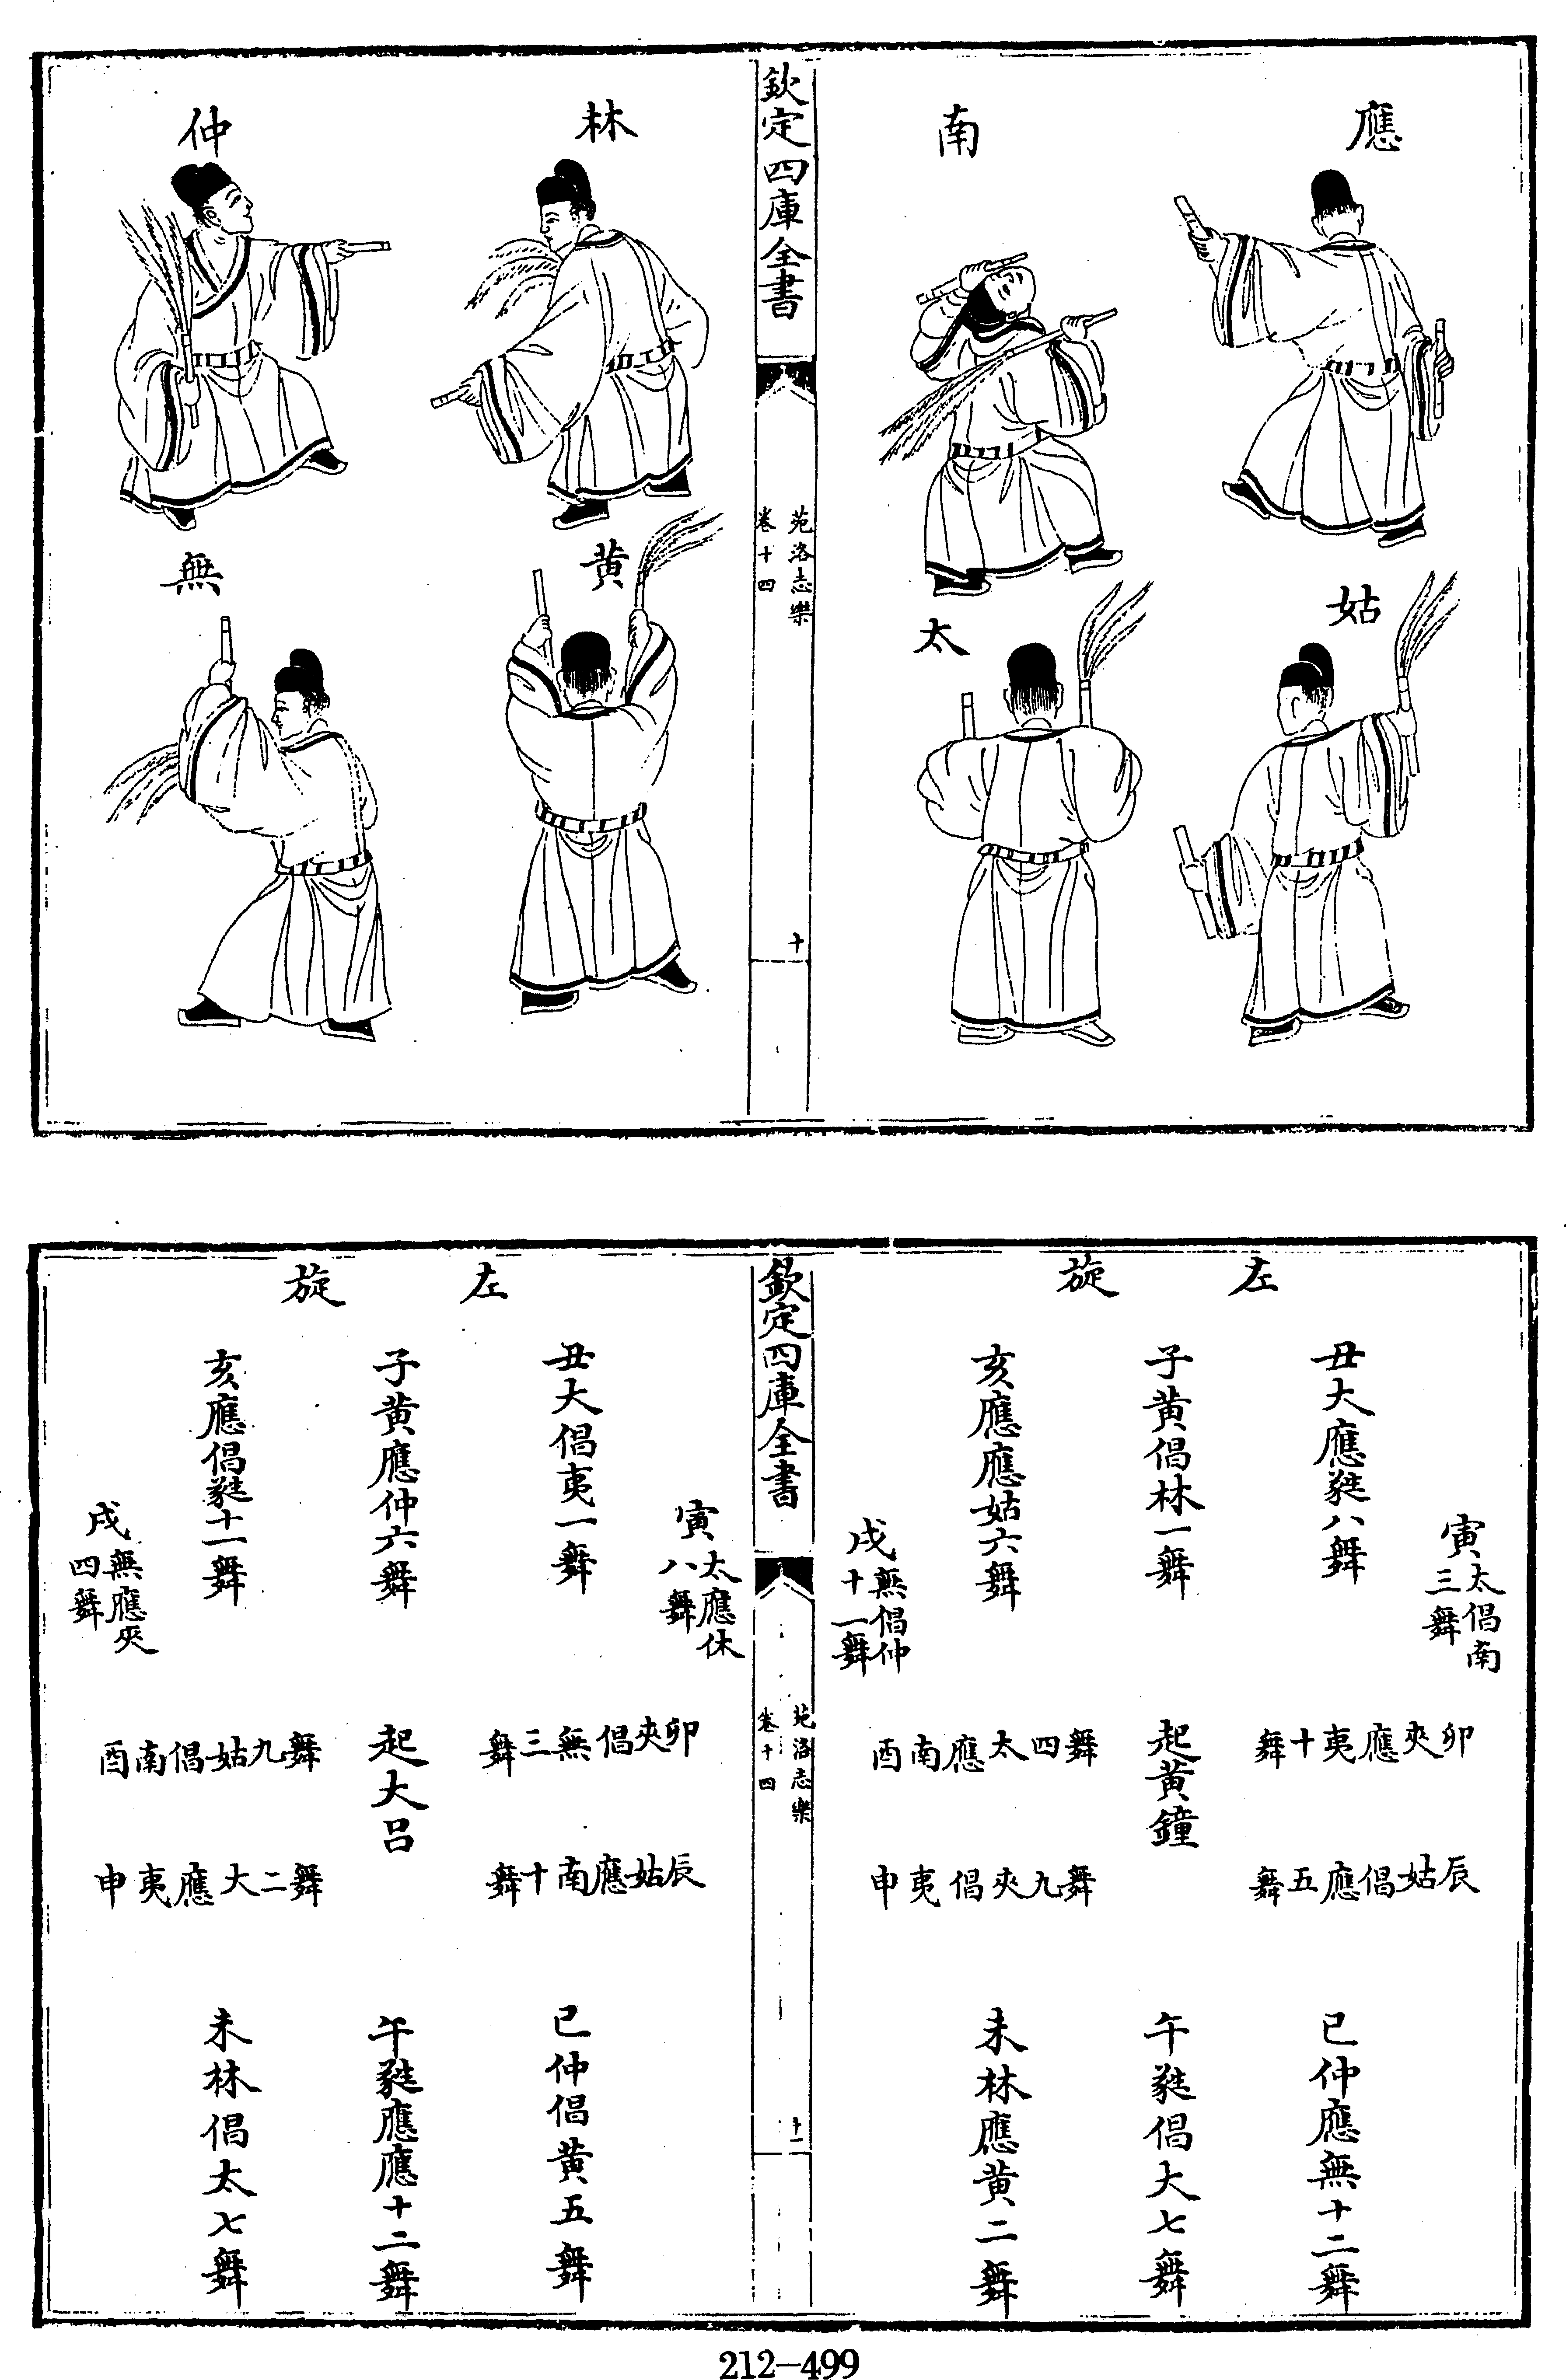 應
南
姑
太
欽定四庫全書
苑洛志樂
卷十四
十
林
仲
黄
無
左旋
丑大應蕤八舞
子黄倡林一舞
亥應應姑六舞
寅太倡南
三舞
戌無倡仲
十一舞
卯夾應夷十舞
起黄鐘
酉南應太四舞
辰姑倡應五舞
申夷倡夾九舞
巳仲應無十二舞
午蕤倡大七舞
未林應黄二舞
欽定四庫全書
苑洛志樂
卷十四
十一
左旋
丑大倡夷一舞
子黄應仲六舞
亥應倡蕤十一舞
寅太應休
八舞
戌無應夾
四舞
卯夾倡無三舞
起大呂
酉南倡姑九舞
辰姑應南十舞
申夷應大二舞
巳仲倡黄五舞
午蕤應應十二舞
未林倡太七舞
212-499